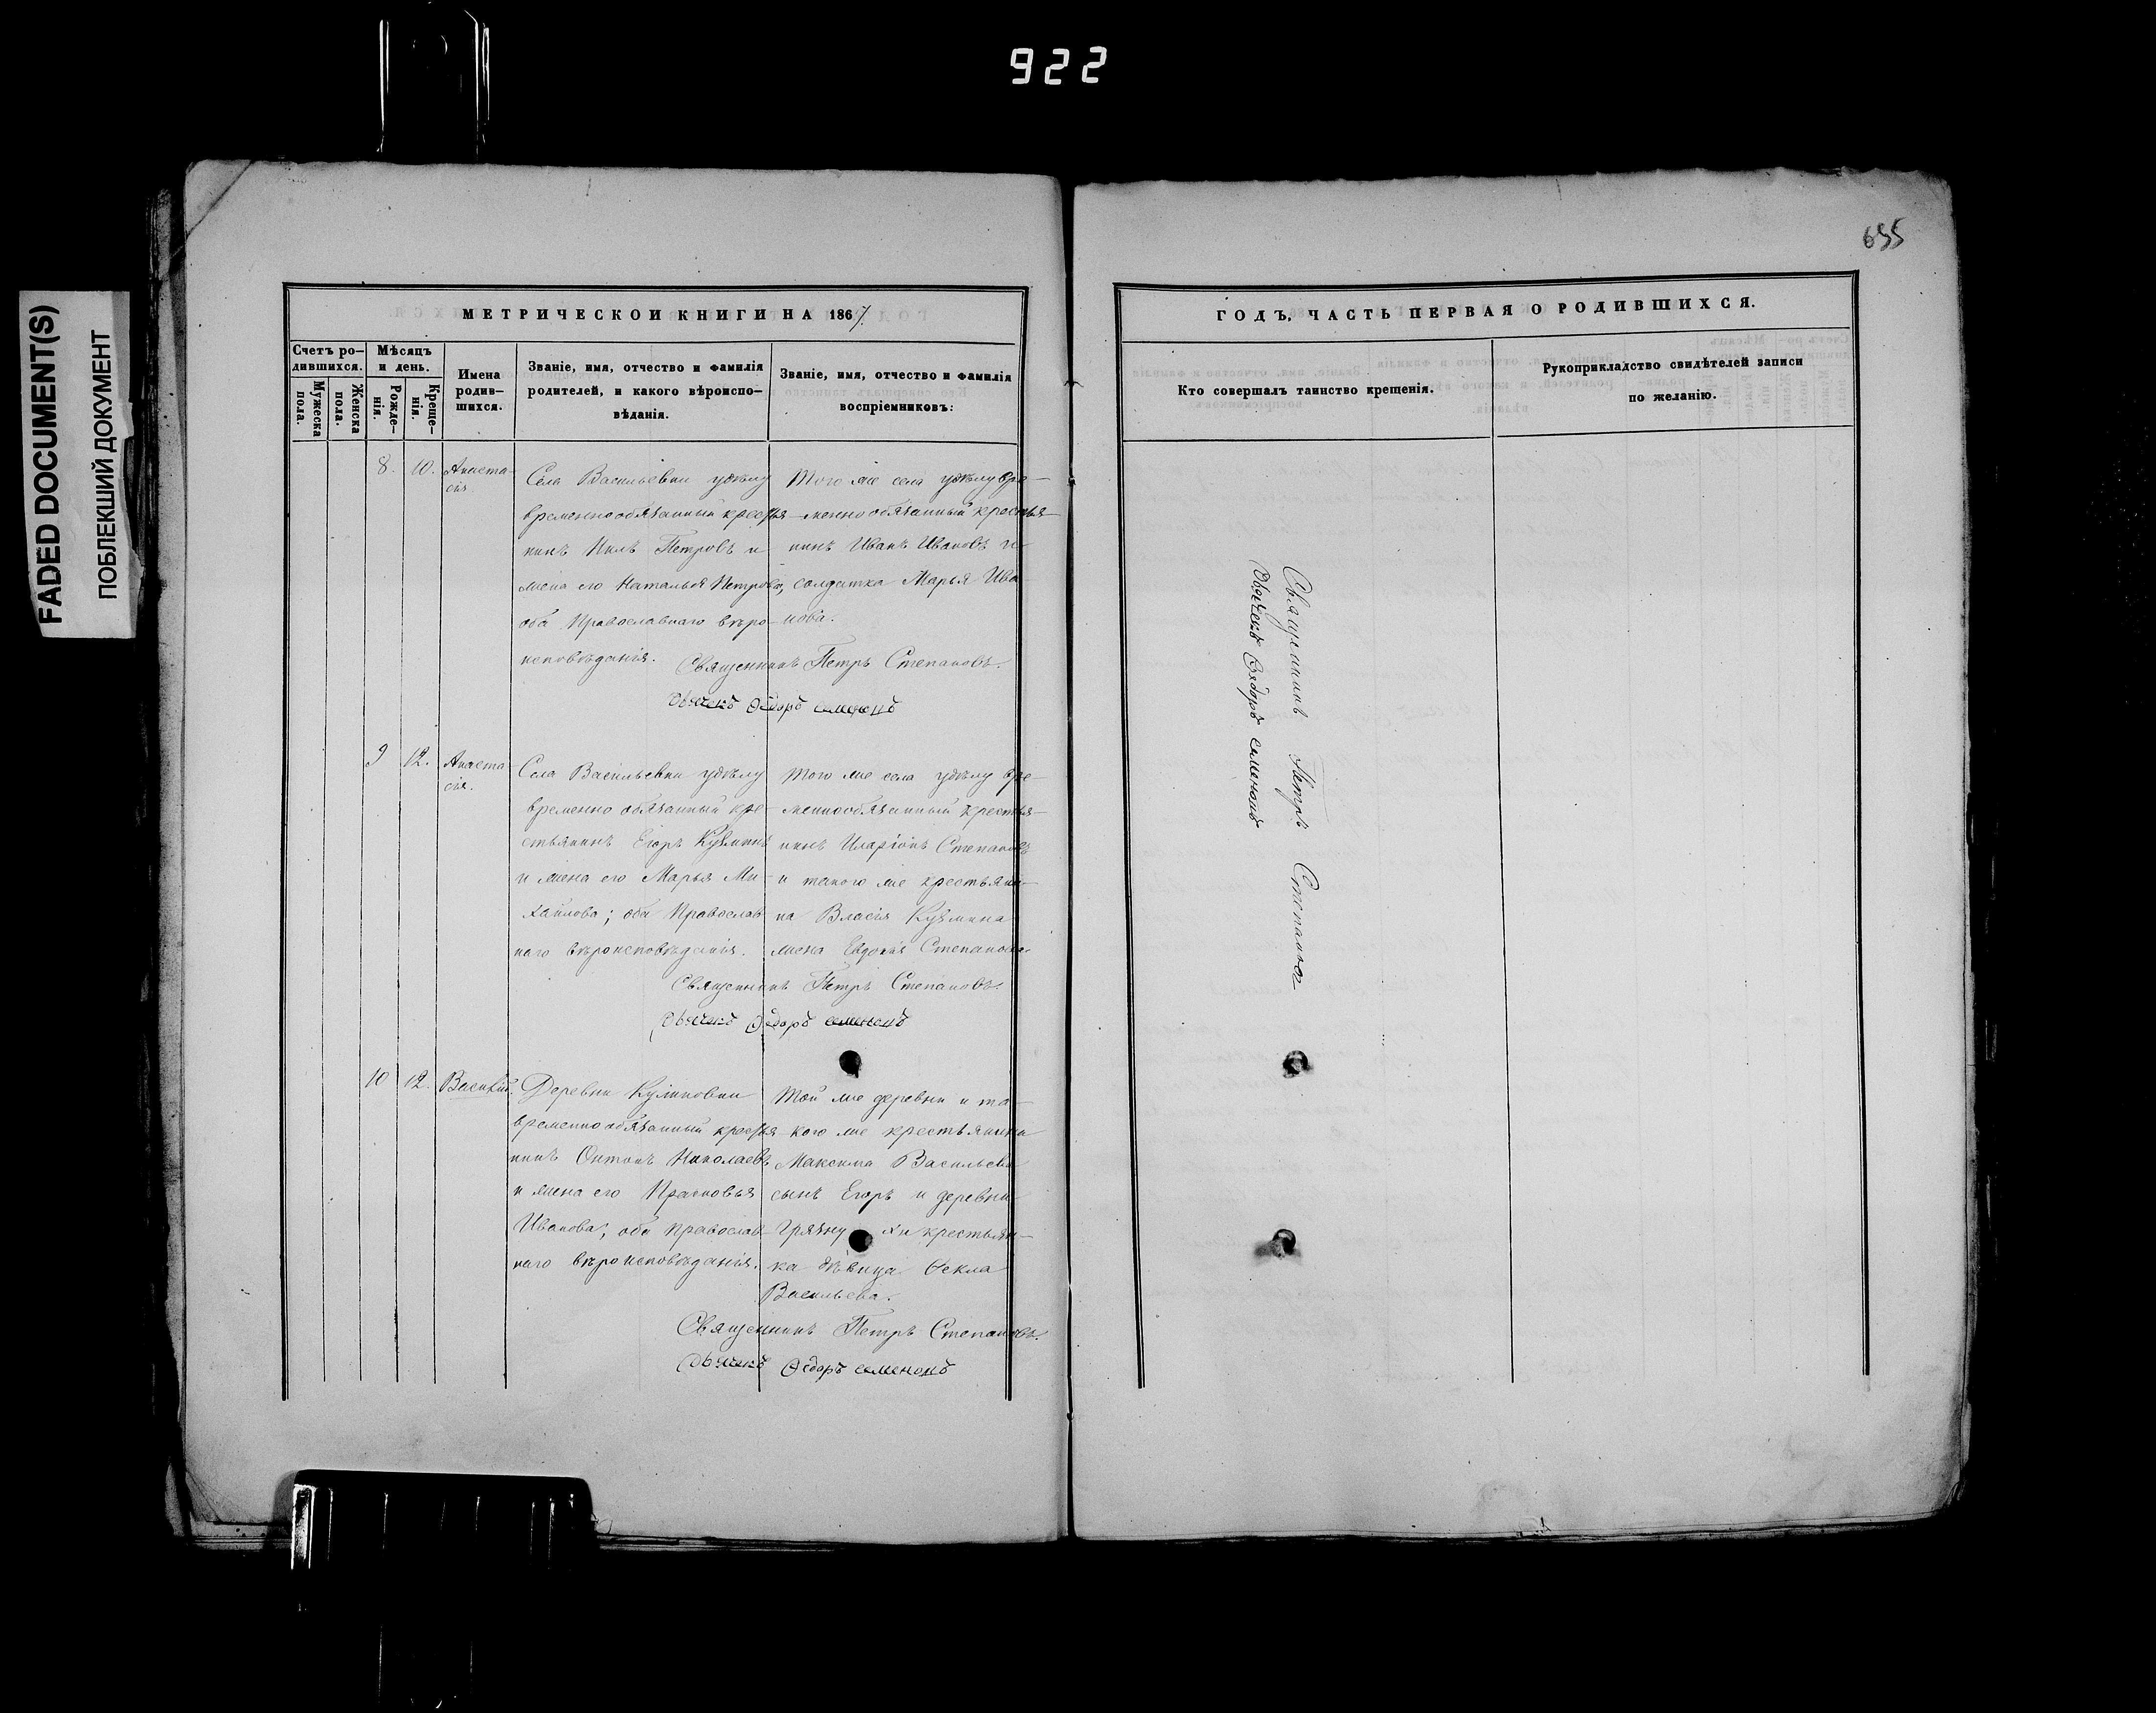 922
655
FADED DOCUMENT(S)
ПОБЛЕКШИЙ ДОКУМЕНТ
МЕТРИЧЕСКОЙ КНИГИ НА 1867.
Счетъ ро-
дившихся.
Мужеска
пола.
Женска
пола.
Мѣсяцъ
и день.
Рожде-
нія.
Креще-
нія.
Имена
родив-
шихся.
Званіе, имя, отчество и фамилія
родителей, и какого вѣроиспо-
вѣданія.
Званіе, имя, отчество и фамилія
воспріемниковъ:
8. 10. Анаста-
сія
Села Васильевки
временнообязанный крестья-
нинъ Петровъ и
жена его Наталья Петрова,
оба Православнаго вѣро-
исповѣданія.
Того же села вре-
меннообязанный крестья-
нинъ Иванъ Ивановъ и
солдатка Марья Ива-
нова.
Священникъ Петръ Степановъ.
Дьячекъ Ѳедоръ Семеновъ
9 12. Анаста-
сія.
Села Васильевки
временно обязанный кре-
стьянинъ Егоръ Кузминъ
и жена его Марья Ми-
хайлова; оба Православ-
наго вѣроисповѣданія.
того же села вре-
меннообязанный крестья-
нинъ Иларіонъ Степановъ
и такого же крестьяни-
на Власія Кузмина
жена Евдокія Степанова
Священникъ Петръ Степановъ.
Дьячекъ Ѳедоръ Семеновъ
10 12. Василій.
Деревни Куликовки
временнообязанный крестья-
нинъ Онтонъ Николаевъ
и жена его Прасковья
Иванова; оба Православ-
наго вѣроисповѣданія.
Той же деревни и та-
кого же крестьянина
Максима Васильева
сынъ Егоръ и деревни
Грязну хи крестьян-
ка дѣвица Ѳекла
Васильева.
Священникъ Петръ Степановъ.
Дьячекъ Ѳедоръ Семеновъ
ГОДЪ, ЧАСТЬ ПЕРВАЯ О РОДИВШИХСЯ.
Кто совершалъ таинство крещенія.
Рукоприкладство свидѣтелей записи
по желанію.
Священникъ Петръ Степановъ
Дьячекъ Ѳедоръ Семеновъ